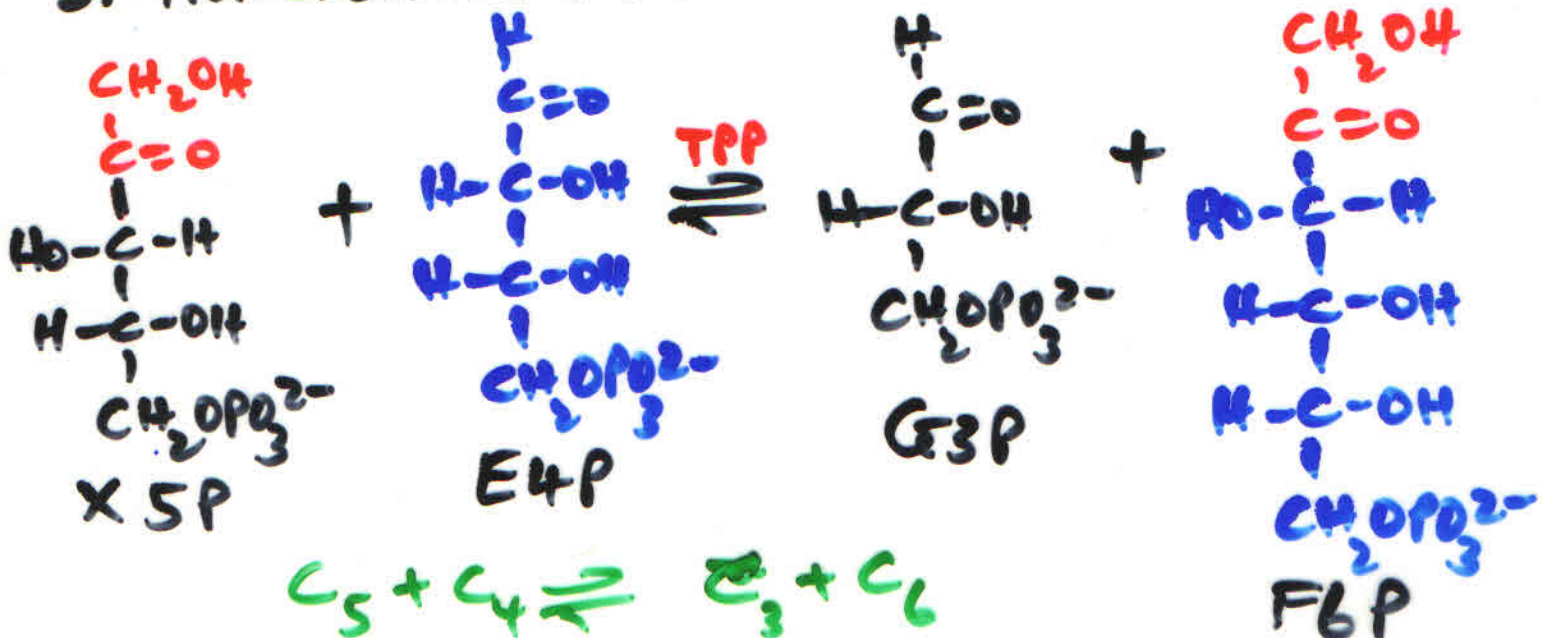 CH2OH
C=O
HO-C-H
H-C-OH
CH2OPO3 2-
X5P
+
H
C=O
H-C-OH
H-C-OH
CH2OPO3 2-
E4P
TPP
⇌
H
C=O
H-C-OH
CH2OPO3 2-
G3P
+
CH2OH
C=O
HO-C-H
H-C-OH
H-C-OH
CH2OPO3 2-
F6P
C5 + C4 ⇌ C3 + C6